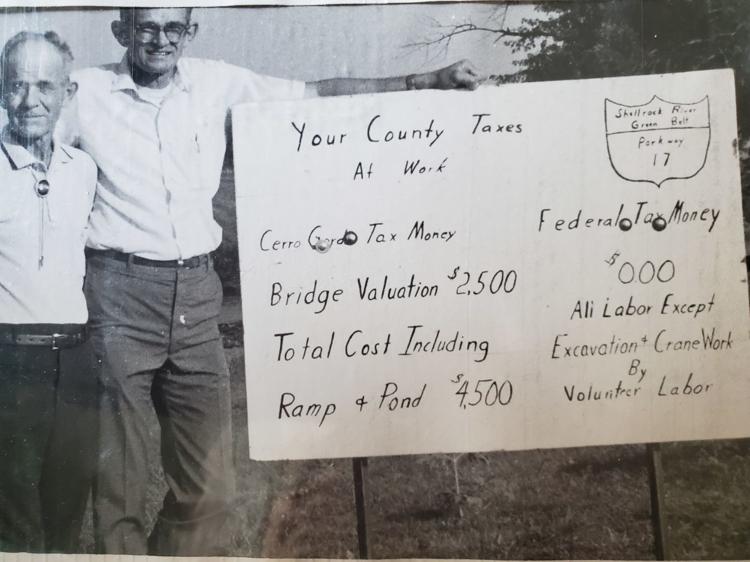 Your County Taxes
At Work
Cerro Gordo Tax Money
Bridge Valuation $2,500
Total Cost Including
Ramp & Pond $4,500
Shellrock River
Green Belt
Parkway
17
Federal Tax Money
$0.00
All Labor Except
Excavation & Crane Work
By
Volunteer Labor